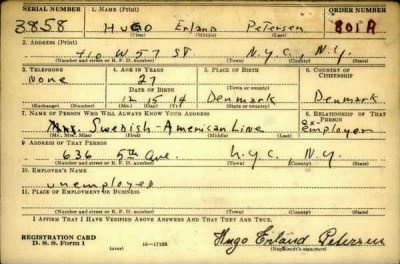 SERIAL NUMBER 1. NAME (Print) ORDER NUMBER
3858 HUGO Erland Petersen 801A
(First) (Middle) (Last)
2. ADDRESS (Print)
410 W 57 St N.Y.C. N.Y.
(Number and street or R. F. D. number) (Town) (County) (State)
3. TELEPHONE 4. AGE IN YEARS 5. PLACE OF BIRTH 6. COUNTRY OF CITIZENSHIP
None 27
DATE OF BIRTH (Town or county)
12 15 14 Denmark Denmark
(Exchange) (Number) (Mo.) (Day) (Yr.) (State or country)
7. NAME OF PERSON WHO WILL ALWAYS KNOW YOUR ADDRESS 8. RELATIONSHIP OF THAT PERSON
Swedish-American Line ex-employer
(Mr., Mrs., Miss) (First) (Middle) (Last)
9. ADDRESS OF THAT PERSON
636 5th Ave. N.Y.C. N.Y.
(Number and street or R. F. D. number) (Town) (County) (State)
10. EMPLOYER'S NAME
unemployed
11. PLACE OF EMPLOYMENT OR BUSINESS
(Number and street or R. F. D. number) (Town) (County) (State)
I AFFIRM THAT I HAVE VERIFIED ABOVE ANSWERS AND THAT THEY ARE TRUE.
REGISTRATION CARD
D. S. S. Form 1 (over) 16-17105 Hugo Erland Petersen
(Registrant's signature)